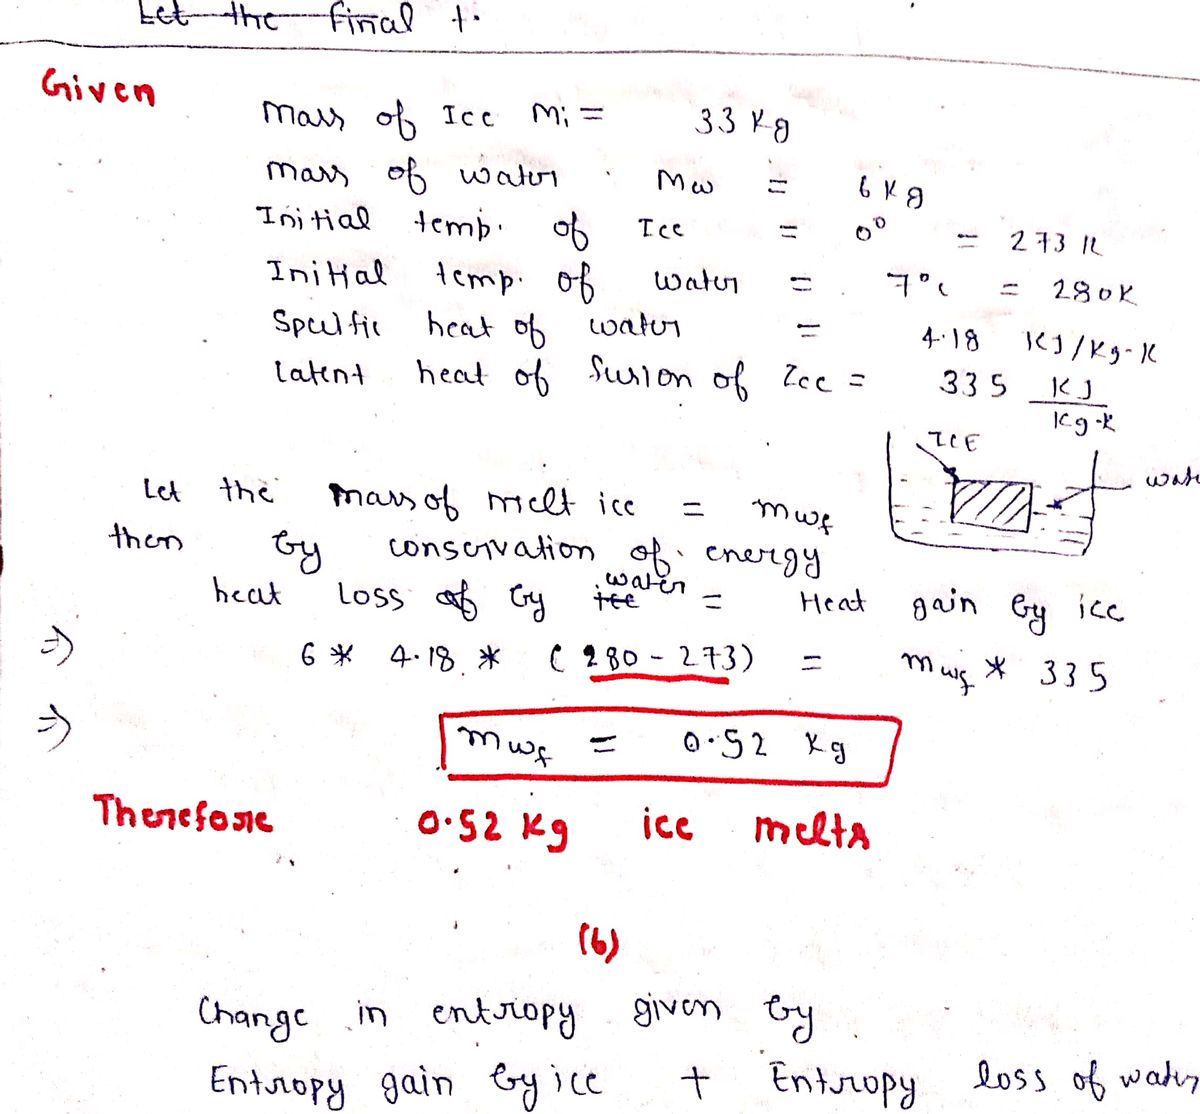 Let the final t.
Given
Mass of Ice Mi = 33 Kg
mass of water Mw = 6 Kg
Initial temp. of Ice = 0° = 273 K
Initial temp. of water = 7°c = 280K
Speilfic heat of water = 4.18 KJ/Kg-K
Latent heat of fusion of Ice = 335 KJ/Kg-K
ICE
wate
Let the mass of melt ice = mwf
then by conservation of energy
heat loss of by ice water = Heat gain by ice
⇒ 6 * 4.18 * (280 - 273) = mwf * 335
⇒ mwf = 0.52 Kg
Therefore 0.52 Kg ice melts
(b)
Change in entropy given by
Entropy gain by ice + Entropy loss of water